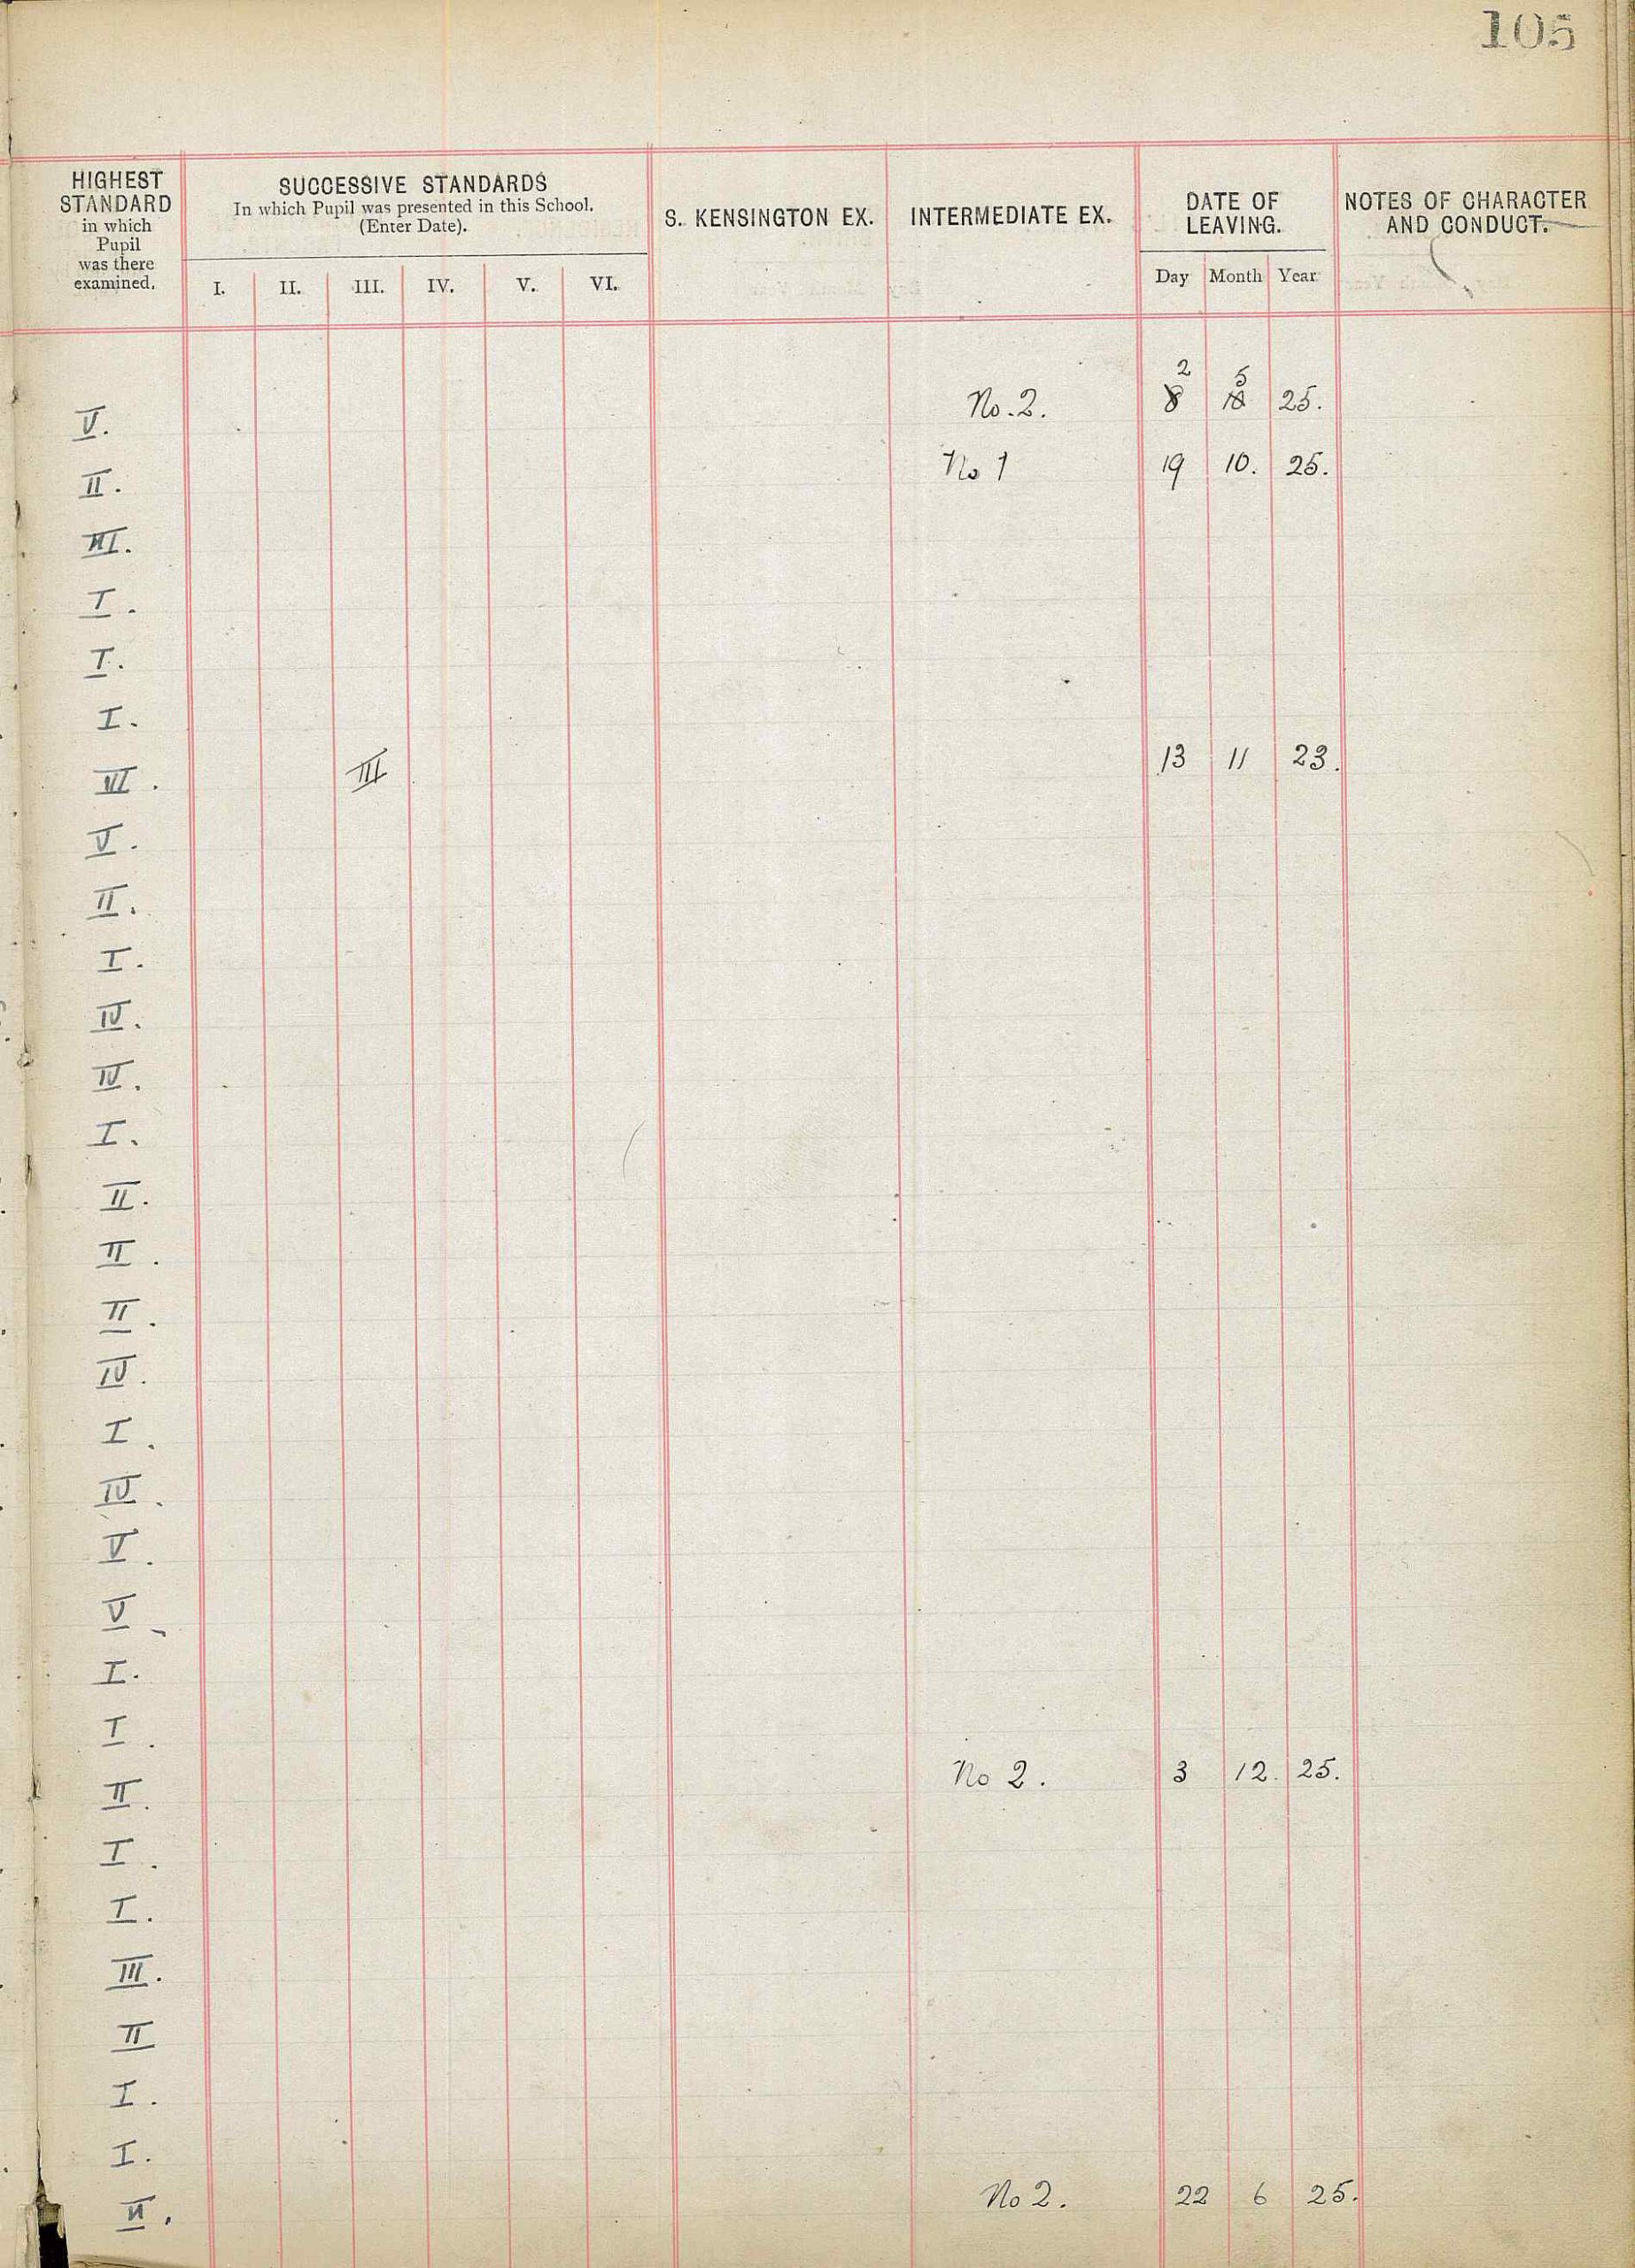 105
HIGHEST STANDARD in which Pupil was there examined.
SUCCESSIVE STANDARDS
In which Pupil was presented in this School.
(Enter Date).
I. II. III. IV. V. VI.
S. KENSINGTON EX.
INTERMEDIATE EX.
DATE OF LEAVING.
Day Month Year
NOTES OF CHARACTER AND CONDUCT.
2 5
V. No. 2. 8 10 25.
II. No 1 19 10. 25.
III.
I.
I.
I.
III. III 13 11 23.
V.
II.
I.
IV.
IV.
I.
II.
II.
II.
IV.
I.
IV.
V.
V
I.
I.
II. No 2. 3 12. 25.
I.
I.
III.
II
I.
I.
II. No 2. 22 6 25.